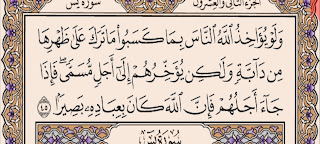 الجزء الثاني والعشرون سورة يس
وَلَوْ يُؤَاخِذُ ٱللَّهُ ٱلنَّاسَ بِمَا كَسَبُوا۟ مَا تَرَكَ عَلَىٰ ظَهْرِهَا
مِن دَآبَّةٍ وَلَٰكِن يُؤَخِّرُهُمْ إِلَىٰٓ أَجَلٍ مُّسَمًّى ۖ فَإِذَا
جَآءَ أَجَلُهُمْ فَإِنَّ ٱللَّهَ كَانَ بِعِبَادِهِۦ بَصِيرًۢا ٤٥
سورة يس